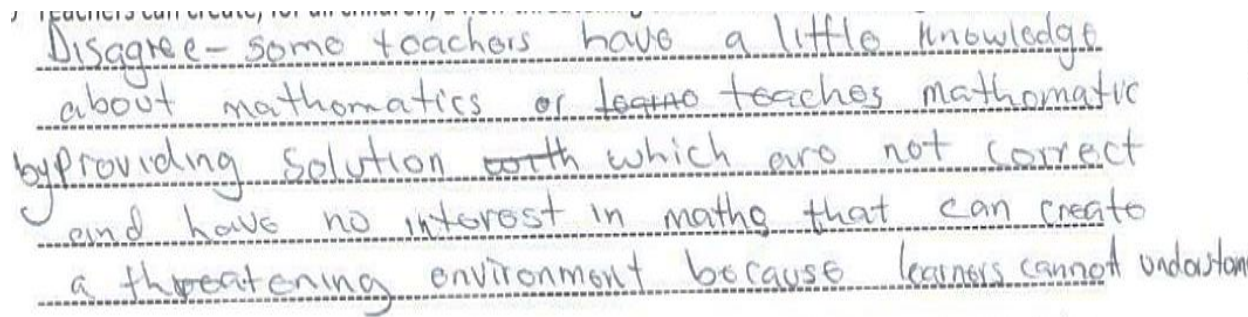 Teachers can create, for all children, a non threatening
Disagree - some teachers have a little knowledge
about mathematics or teaches mathematic
by providing solution which are not correct
and have no interest in maths that can create
a threatening environment because learners cannot understand